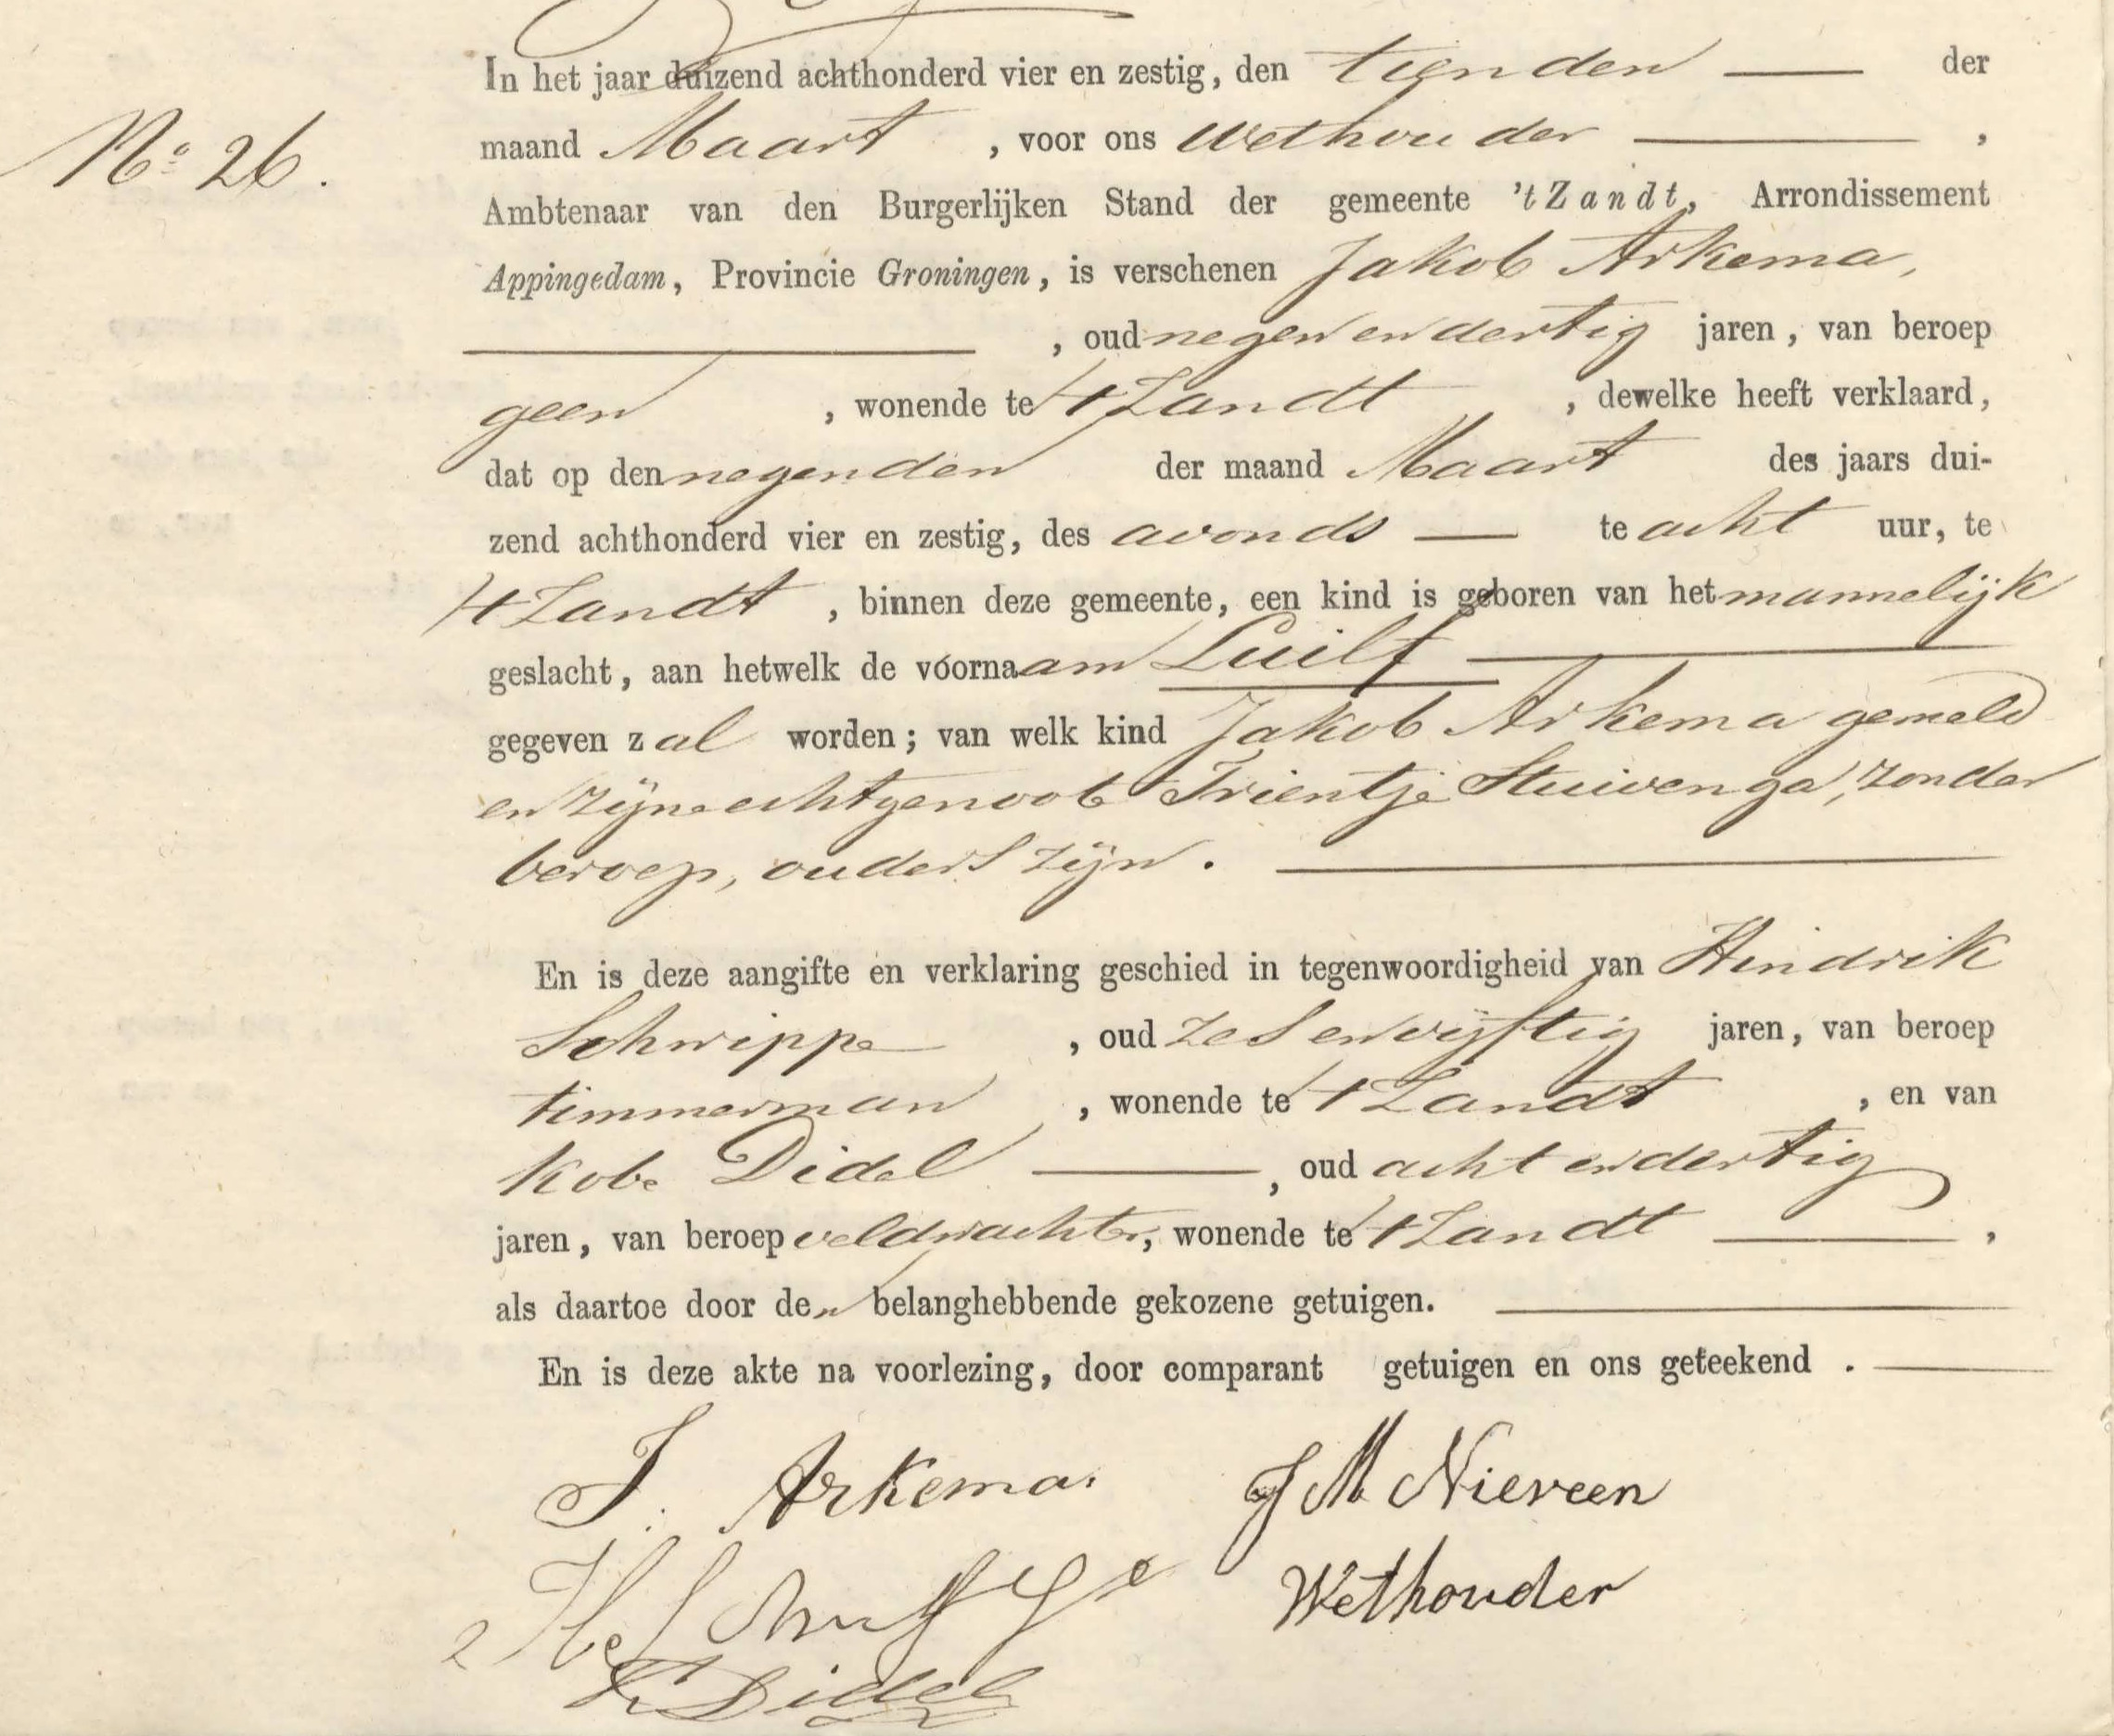 In het jaar duizend achthonderd vier en zestig, den tienden der
No 26.
maand Maart , voor ons Wethouder ,
Ambtenaar van den Burgerlijken Stand der gemeente 't Zandt, Arrondissement
Appingedam, Provincie Groningen, is verschenen Jakob Arkema,
, oud negen en dertig jaren, van beroep
geen , wonende te 't Zandt , dewelke heeft verklaard,
dat op den negenden der maand Maart des jaars dui-
zend achthonderd vier en zestig, des avonds te acht uur, te
't Zandt , binnen deze gemeente, een kind is geboren van het mannelijk
geslacht, aan hetwelk de voornaam Luilf
gegeven zal worden; van welk kind Jakob Arkema gemeld
en zijne echtgenoot Trientje Stuivenga, zonder
beroep, ouders zijn.
En is deze aangifte en verklaring geschied in tegenwoordigheid van Hindrik
Schrippe , oud zes en vijftig jaren, van beroep
timmerman , wonende te 't Zandt , en van
Kobe Didel , oud acht en dertig
jaren, van beroep veldwachter, wonende te 't Zandt ,
als daartoe door den belanghebbende gekozene getuigen.
En is deze akte na voorlezing, door comparant getuigen en ons geteekend .
J. Arkema. J M Nieveen
Wethouder
K Didel